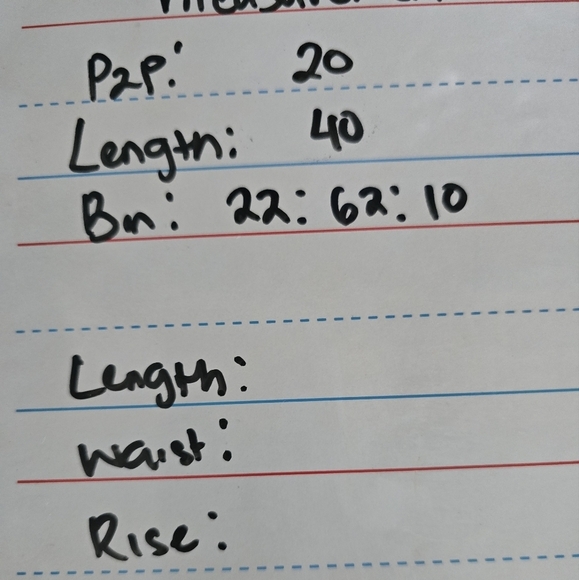 P2P: 20
Length: 40
Bn: 22: 62: 10
Length:
waist:
Rise: